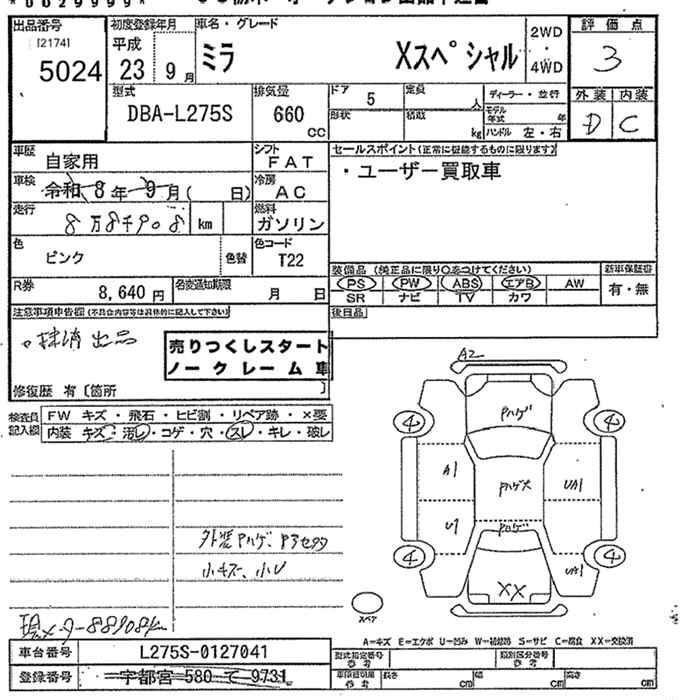 出品番号
[2174]
5024
初度登録年月
平成
23 9月
車名・グレード
ミラ Xスペシャル
2WD
4WD
評価点
3
外装 内装
D C
型式
DBA-L275S
排気量
660
CC
ドア
5
定員
人
形状
積載
kg
ディーラー・並行
モデル年式 年
ハンドル 左・右
車歴
自家用
シフト
FAT
車検
令和 8年 9月( 日)
冷房
AC
走行
8万8千908 km
燃料
ガソリン
色
ピンク
色替
色コード
T22
R券
8,640円
名変通知期限
月 日
セールスポイント(正常に症能するものに限ります)
・ユーザー買取車
装備品 (純正品に限り○をつけてください)
PS PW ABS エアB AW
SR ナビ TV カワ
新車保証書
有・無
後日品
注意事項申告欄(不具合内容等は具体的に記入して下さい)
抹消 出品
売りつくしスタート
ノークレーム車
修復歴 有〔箇所 〕
検査員記入欄
FW キズ・飛石・ヒビ割・リペア跡・×要
内装 キズ・汚レ・コゲ・穴・スレ・キレ・破レ
A2
Pハゲ
4
4
A1
Pハゲ大
UA1
U1
Pハゲ
4
4
UA1
XX
スペア
外装Pハゲ、
小キズ、小U
現メーター88908km
A=キズ E=エクボ U=凹み W=補修跡 S=サビ C=腐食 XX=交換済
車台番号
L275S-0127041
登録番号
宇都宮 580 て 9731
型式指定番号
参考
類別区分番号
参考
長さ
cm
幅
cm
高さ
cm